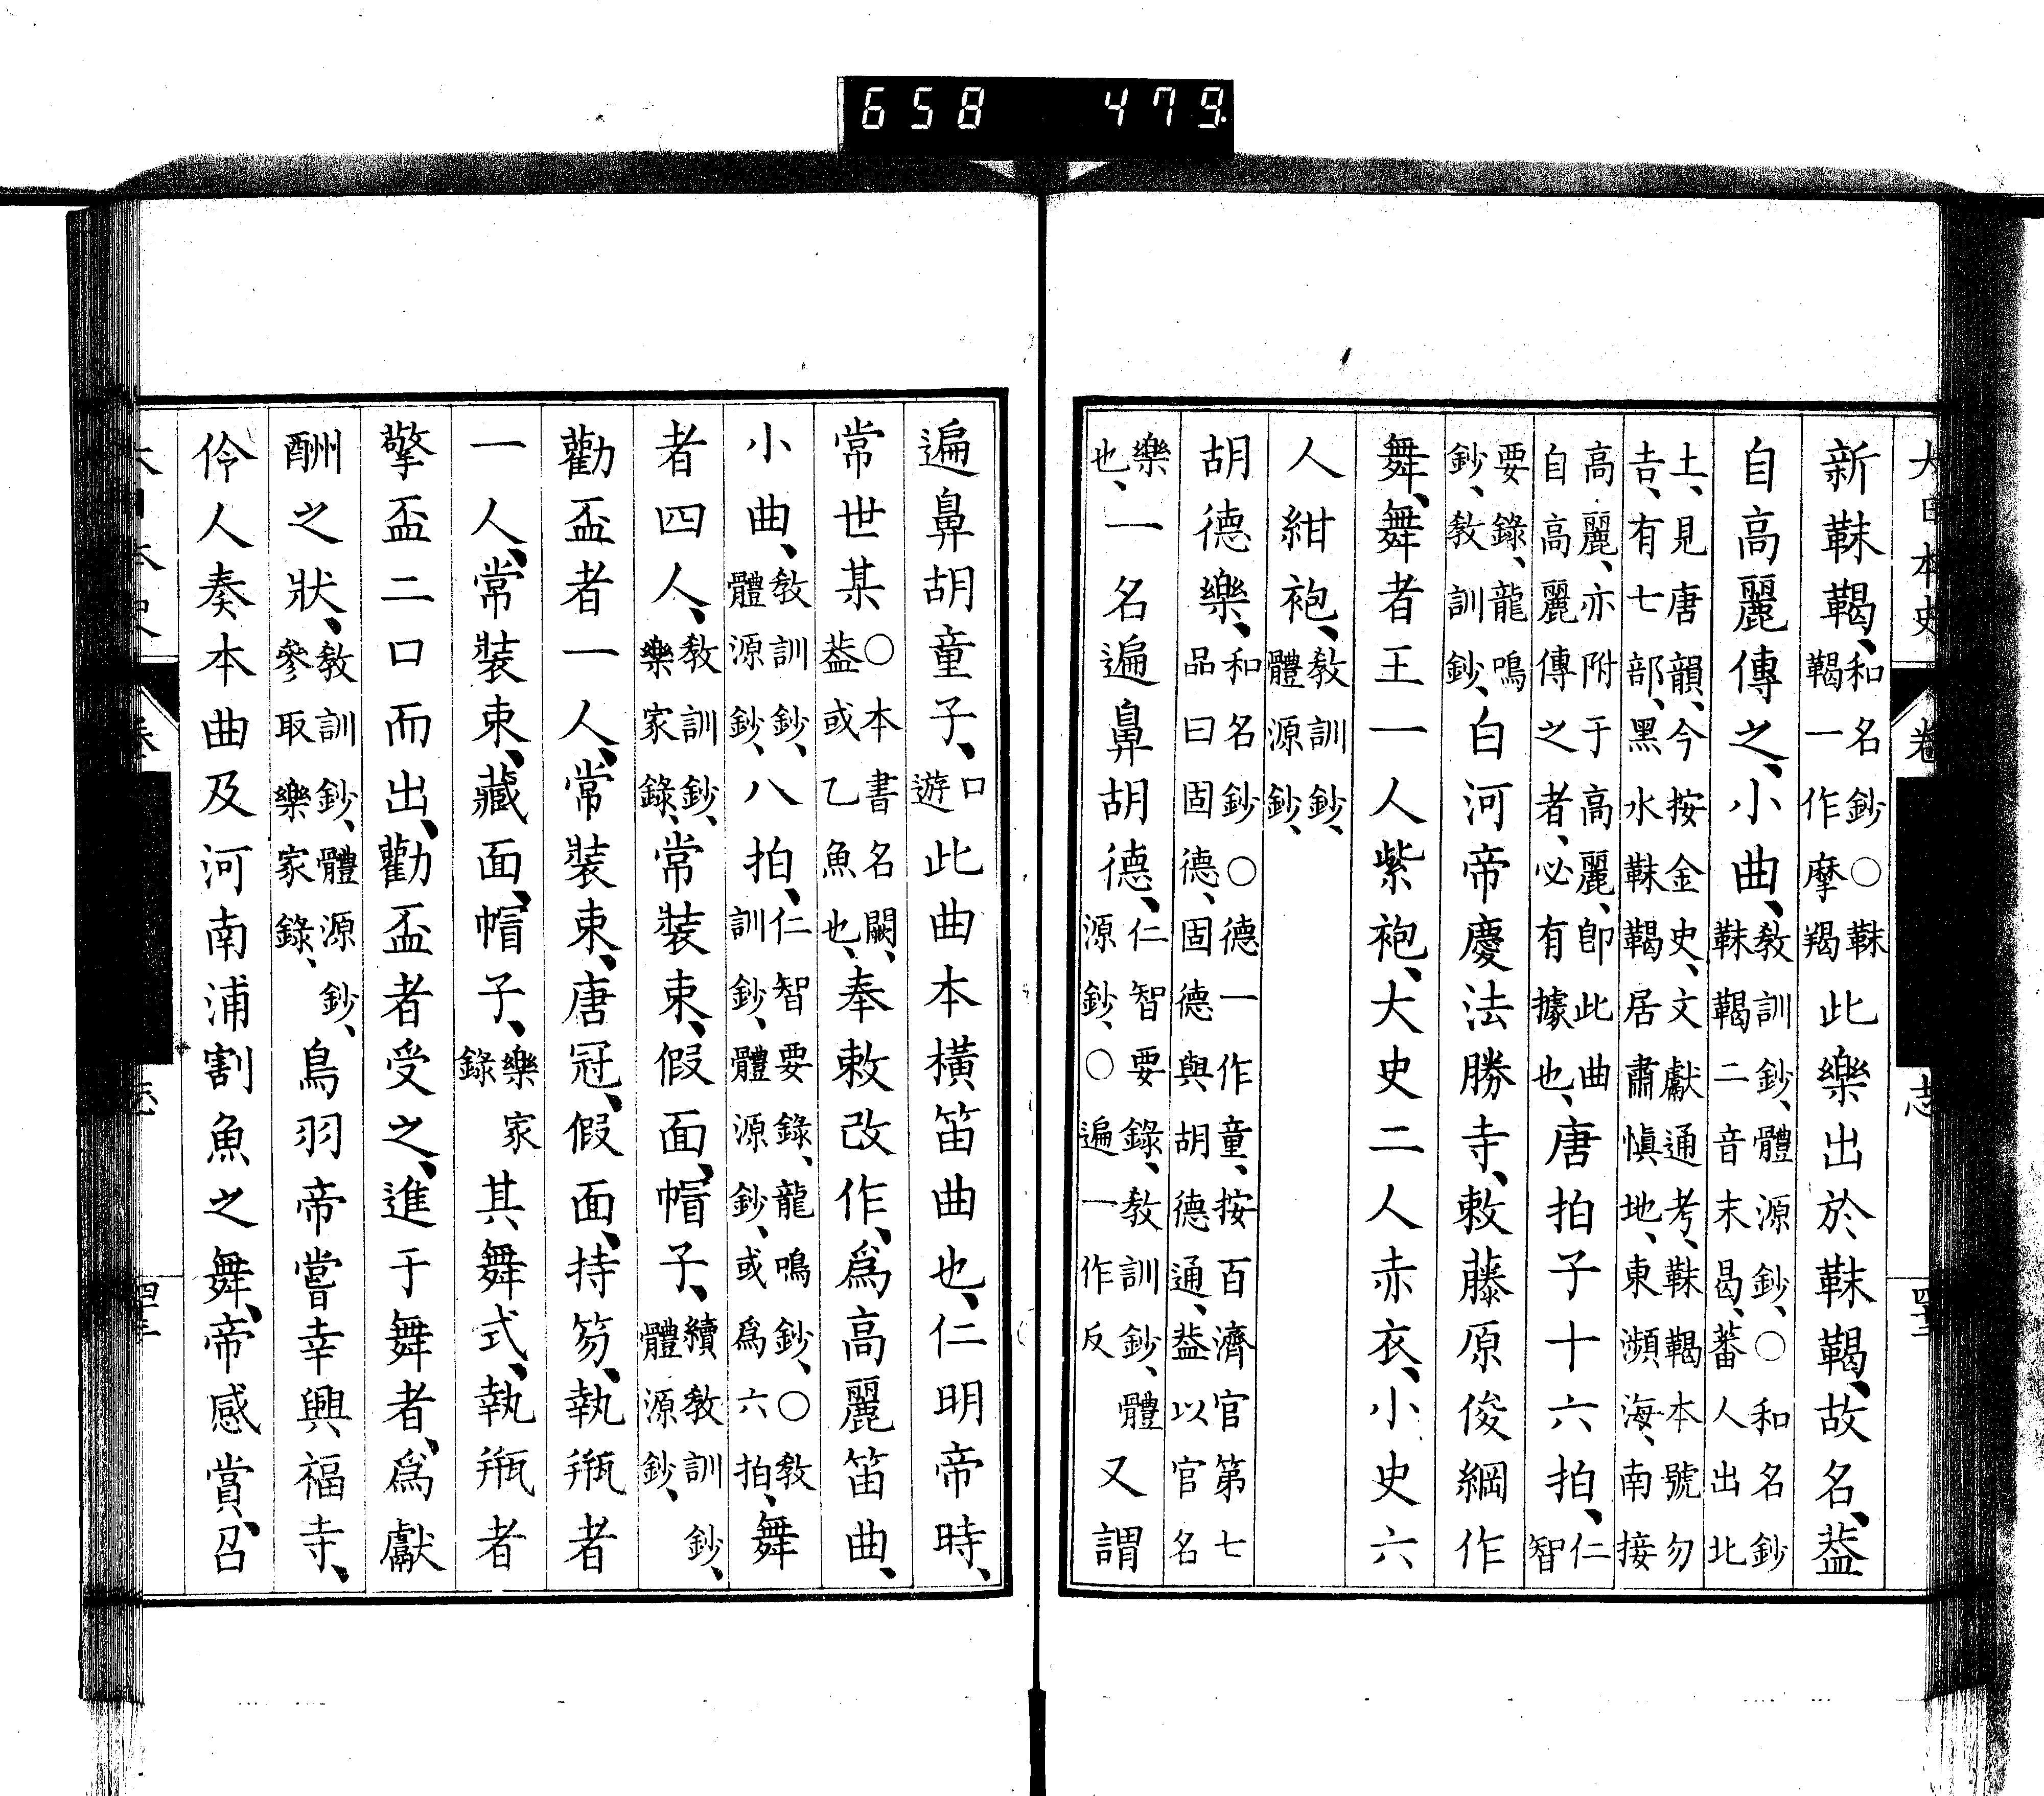 658 479
大日本史
新靺鞨、和名鈔○靺鞨一作摩羯此樂出於靺鞨、故名、蓋
自高麗傳之、小曲、教訓鈔、體源鈔、○和名鈔靺鞨二音末曷、蕃人出北
土、見唐韻、今按金史、文獻通考、靺鞨本號勿吉、有七部、黑水靺鞨居肅愼地、東瀕海、南接
高麗、亦附于高麗、卽此曲自高麗傳之者、必有據也、唐拍子十六拍、仁智
要錄、龍鳴鈔、教訓鈔、白河帝慶法勝寺、敕藤原俊綱作
舞、舞者王一人紫袍、大史二人赤衣、小史六
人紺袍、教訓鈔、體源鈔、
胡德樂、和名鈔○德一作童、按百濟官第七品曰固德、固德與胡德通、蓋以官名
樂也、一名遍鼻胡德、仁智要錄、教訓鈔、體源鈔、○遍一作反又謂
遍鼻胡童子、口遊此曲本橫笛曲也、仁明帝時、
常世某○本書名闕、蓋或乙魚也、奉敕改作、爲高麗笛曲、
小曲、教訓鈔、體源鈔、八拍、仁智要錄、龍鳴鈔、○教訓鈔、體源鈔、或爲六拍、舞
者四人、教訓鈔、樂家錄、常裝束、假面、帽子、續教訓鈔、體源鈔、
勸盃者一人、常裝束、唐冠、假面、持笏、執瓶者
一人、常裝束、藏面、帽子、樂家錄其舞式、執瓶者
擎盃二口而出、勸盃者受之、進于舞者、爲獻
酬之狀、教訓鈔、體源鈔、參取樂家錄、鳥羽帝嘗幸興福寺、
伶人奏本曲及河南浦割魚之舞、帝感賞、召